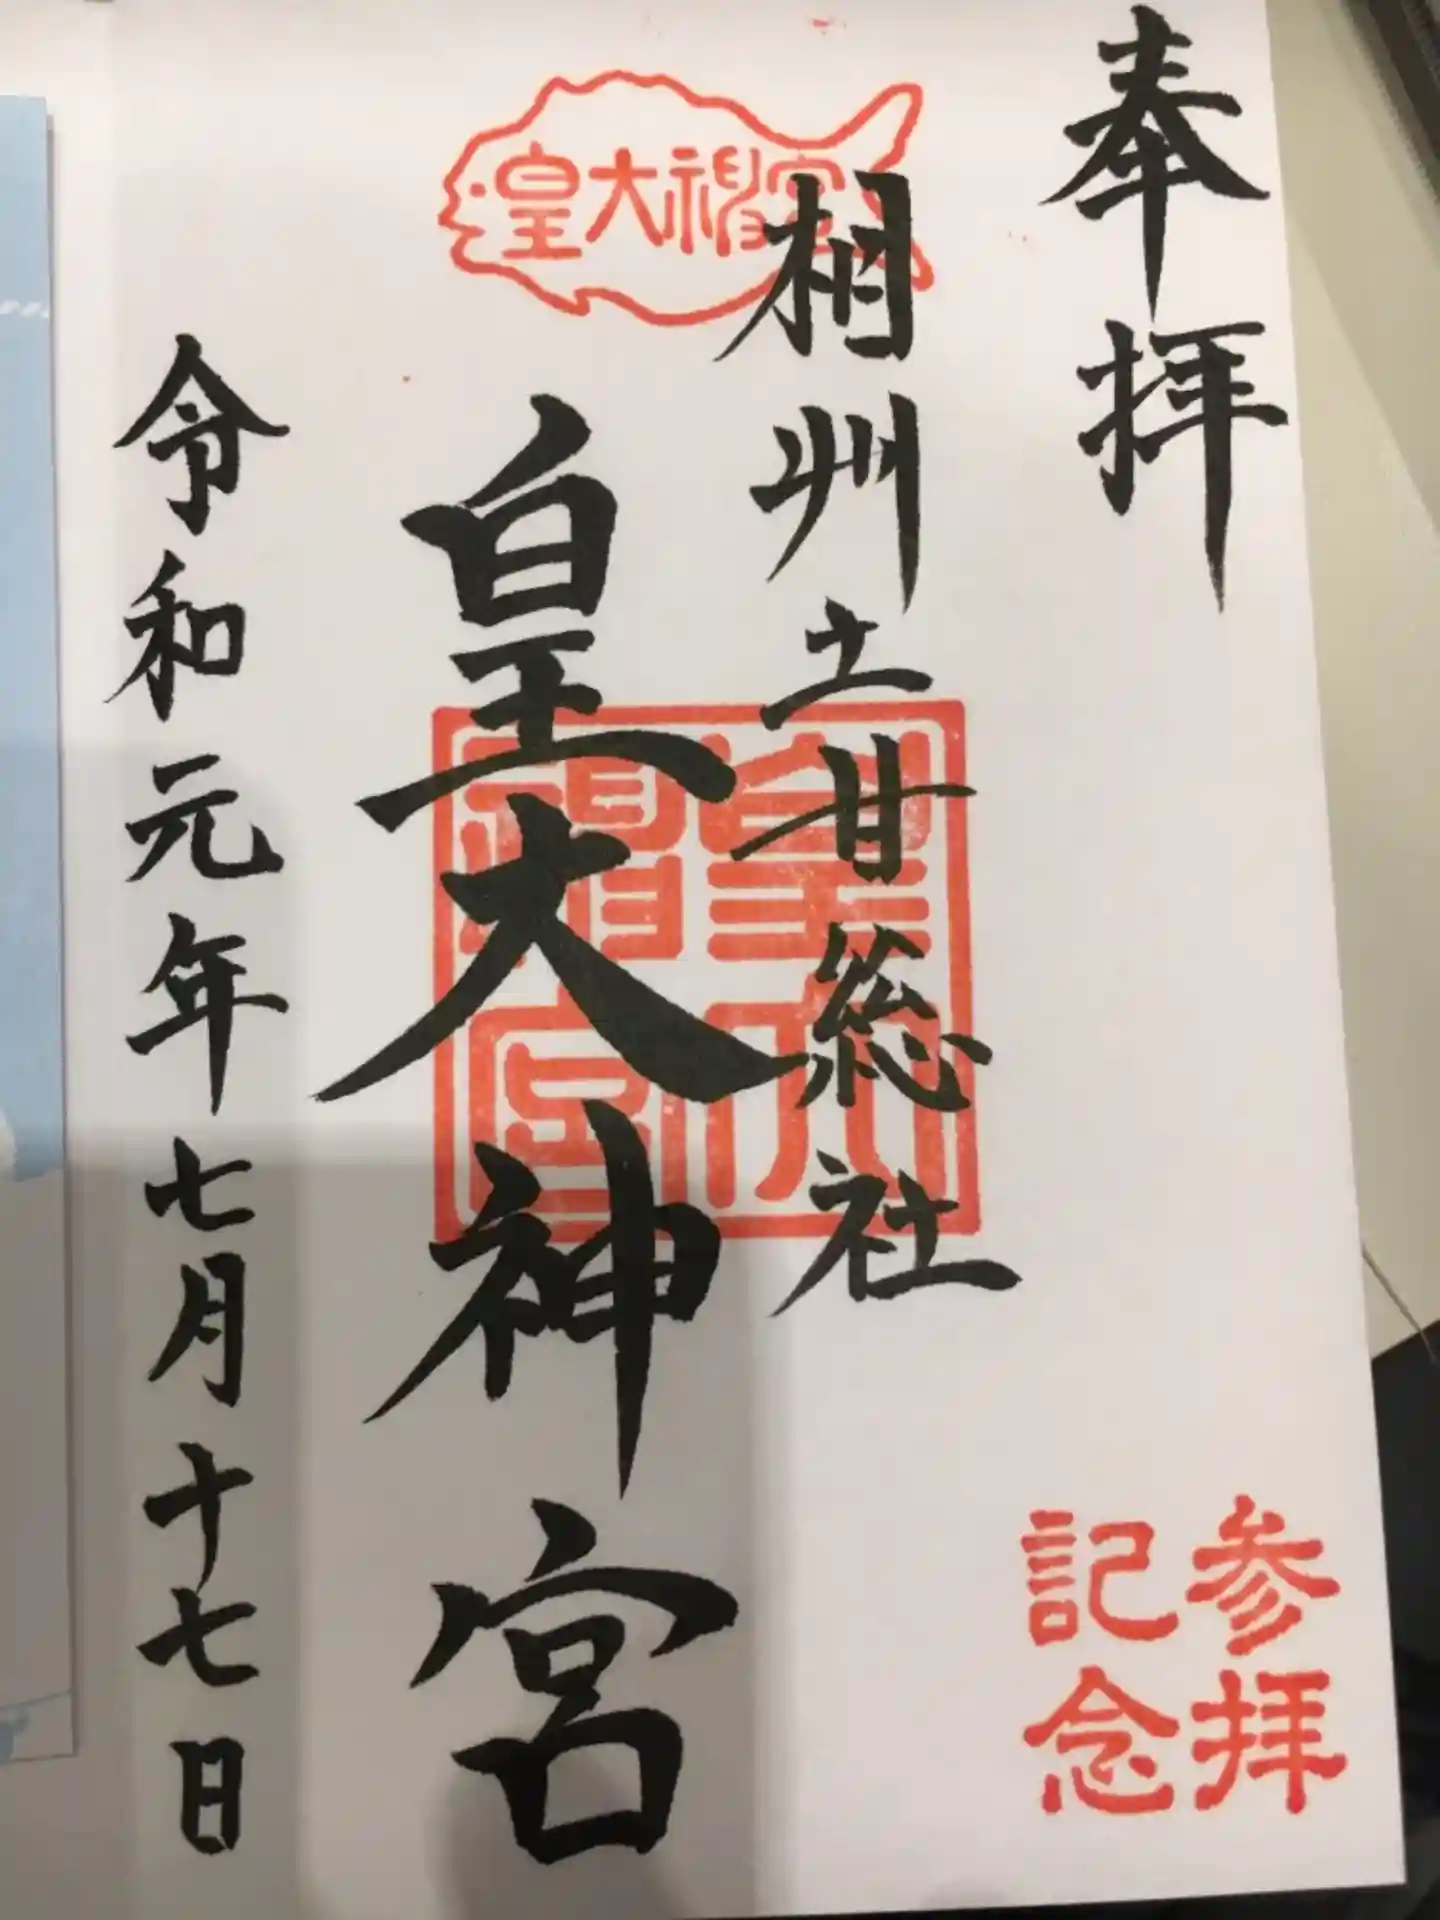 奉拝
相州土甘総社
皇大神宮
令和元年七月十七日
皇大神宮
皇大神宮
参拝
記念